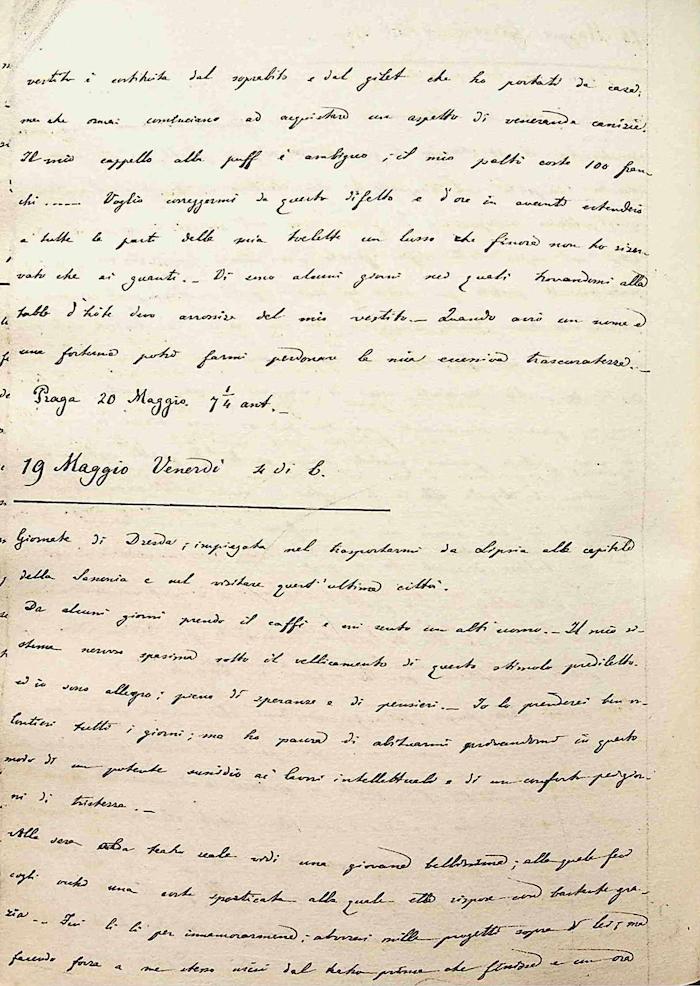 vestito è costituita dal soprabito e dal gilet che ho portati da casa;
ma che ormai cominciano ad acquistare un aspetto di veneranda canizie.
Il mio cappello alla puff è antiguo; il mio paltò costò 100 fran-
chi ..... Voglio correggermi da questo difetto e d'ora in avanti estenderò
a tutte le parti della mia toelette un lusso che finora non ho riser-
vato che ai guanti. _ Vi sono alcuni giorni nei quali trovandomi alla
table d'hôte devo arrossire del mio vestito. _ Quando avrò un nome ed
una fortuna potrò farmi perdonare la mia eccessiva trascuratezza. _
Praga 20 Maggio. 7 1/4 ant. _
19 Maggio Venerdì 4 di L.
Giornata di Dresda; impiegata nel trasportarmi da Lipsia alla capitale
della Sassonia e nel visitare quest'ultima città.
Da alcuni giorni prendo il caffè e mi sento un altr'uomo. _ Il mio si-
stema nervoso spasima sotto il vellicamento di questo stimolo prediletto
ed io sono allegro; pieno di speranze e di pensieri. _ Io lo prenderei ben vo-
lontieri tutti i giorni; ma ho paura di abituarmi privandomi in questo
modo di un potente sussidio ai lavori intellettuali e di un conforto pei gior-
ni di tristezza. _
Alla sera al teatro reale vidi una giovane bellissima; alla quale feci
cogli occhi una corte spasticata alla quale ella rispose con bastante gra-
zia. _ Fui lì lì per innamorarmene; abozzai mille progetti sopra di lei; ma
facendo forza a me stesso uscii dal teatro prima che finisse e un'ora